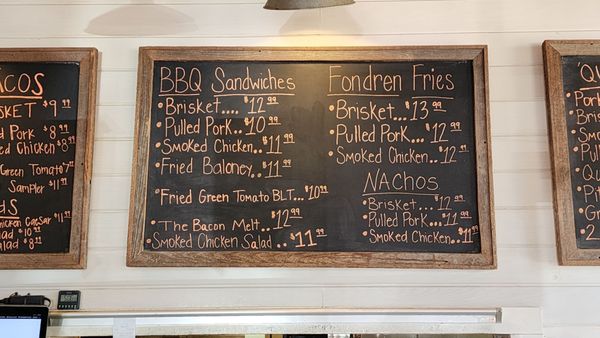 acos
isket $9 99
d Pork $8 99
d Chicken $8 99
Green Tomato 7 99
Sampler $11 99
hicken Caesar $11 99
ad $10 99
alad $8 99
BBQ Sandwiches
• Brisket... $12 99
• Pulled Pork.. $10 99
• Smoked Chicken.. $11 99
• Fried Baloney.. $11 99
• Fried Green Tomato BLT.. $10 99
• The Bacon Melt.. $12 99
• Smoked Chicken Salad.. $11 99
Fondren Fries
• Brisket... $13 99
• Pulled Pork.. $12 99
• Smoked Chicken.. $12 99
Nachos
• Brisket... $12 99
• Pulled Pork.. $11 99
• Smoked Chicken.. $11 99
Pork
Bris
Smok
Pul